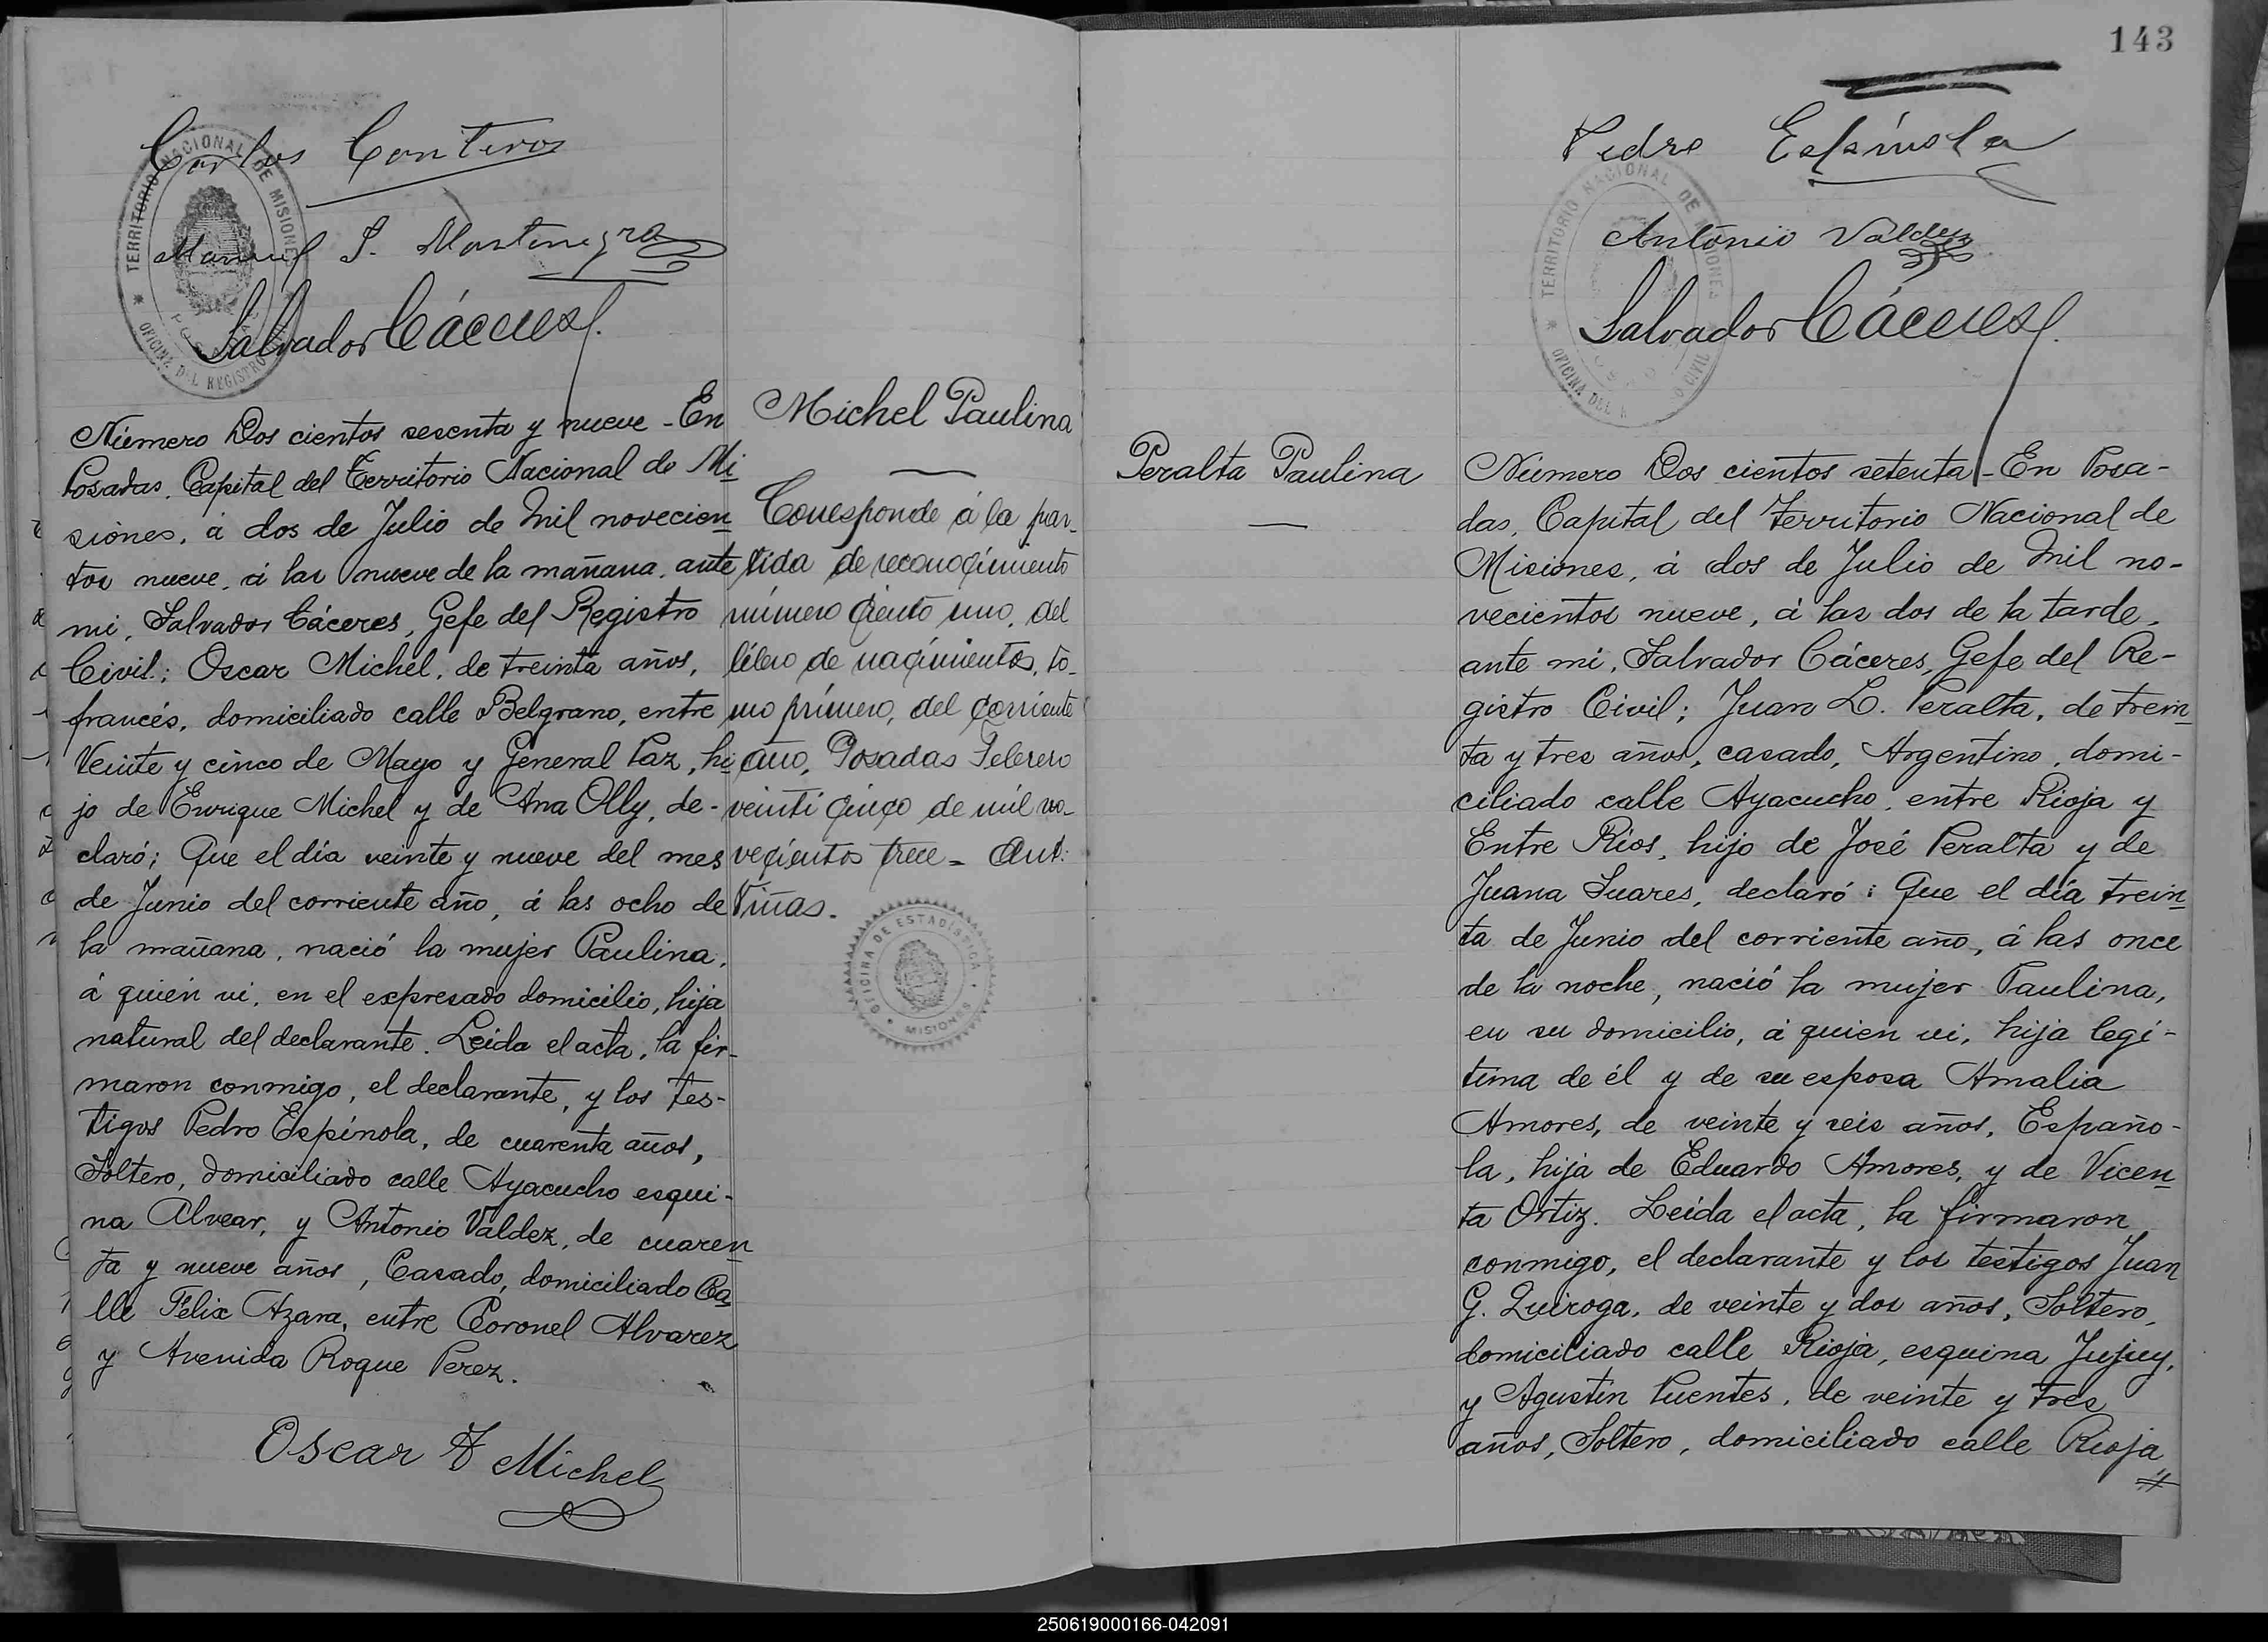 Carlos Contivos
Manuel S. Montenegro
Salvador Cáceres.
TERRITORIO NACIONAL DE MISIONES
OFICINA DEL REGISTRO
Número Dos cientos sesenta y nueve - En
Posadas, Capital del Territorio Nacional de Mi
siones, á dos de Julio de Mil novecien
tos nueve, á las nueve de la mañana, ante
mi, Salvador Cáceres, Gefe del Registro
Civil; Oscar Michel, de treinta años,
francés, domiciliado calle Belgrano, entre
Veinte y cinco de Mayo y General Paz, hi
jo de Enrique Michel y de Ana Olly, de-
claró; Que el día veinte y nueve del mes
de Junio del corriente año, á las ocho de
la mañana, nació la mujer Paulina,
á quien vi, en el expresado domicilio, hija
natural del declarante. Leida el acta, la fir-
maron conmigo, el declarante, y los tes-
tigos Pedro Espínola, de cuarenta años,
Soltero, domiciliado calle Ayacucho esqui-
na Alvear, y Antonio Valdez, de cuaren
ta y nueve años, Casado, domiciliado Ca
lle Félix Azara, entre Coronel Alvarez
y Avenida Roque Perez.
Oscar F Michel
Michel Paulina
Corresponde á la par-
tida de reconocimiento
número ciento uno, del
libro de nacimientos, to-
mo primero, del corriente
año, Posadas Febrero
veinti cinco de mil no-
vecientos trece - Ant:
Viñas.
OFICINA DE ESTADISTICA
MISIONES
143
Pedro Espínola
Antonio Valdez
Salvador Cáceres.
TERRITORIO NACIONAL DE MISIONES
OFICINA DEL R O CIVIL
Peralta Paulina
Número Dos cientos setenta - En Posa-
das, Capital del Territorio Nacional de
Misiones, á dos de Julio de Mil no-
vecientos nueve, á las dos de la tarde,
ante mi, Salvador Cáceres, Gefe del Re-
gistro Civil; Juan L. Peralta, de trein
ta y tres años, casado, Argentino, domi-
ciliado calle Ayacucho, entre Rioja y
Entre Rios, hijo de José Peralta y de
Juana Suares, declaró: Que el día trein
ta de Junio del corriente año, á las once
de la noche, nació la mujer Paulina,
en su domicilio, á quien vi, hija legí-
tima de él y de su esposa Amalia
Amores, de veinte y seis años, Españo-
la, hija de Eduardo Amores, y de Vicen
ta Ortiz. Leida el acta, la firmaron
conmigo, el declarante y los testigos Juan
G. Quiroga, de veinte y dos años, Soltero,
domiciliado calle Rioja, esquina Jujuy,
y Agustin Puentes, de veinte y tres
años, Soltero, domiciliado calle Rioja
250619000166-042091